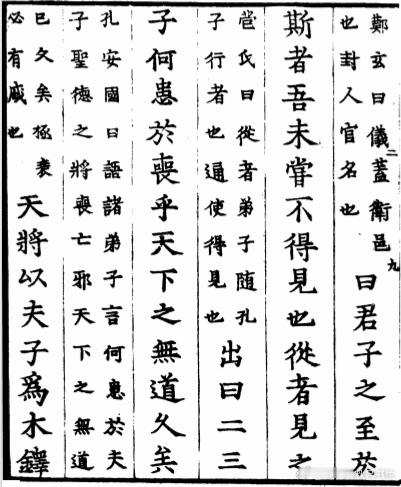 鄭玄曰儀蓋衛邑
也封人官名也
曰君子之至於
斯者吾未甞不得見也從者見之
苞氏曰從者弟子随孔
子行者也通使得見也
出曰二三
子何患於喪乎天下之無道久矣
孔安國曰語諸弟子言何患於夫
子聖德之將喪亡邪天下之無道
已久矣極衰
必有盛也
天將以夫子爲木鐸